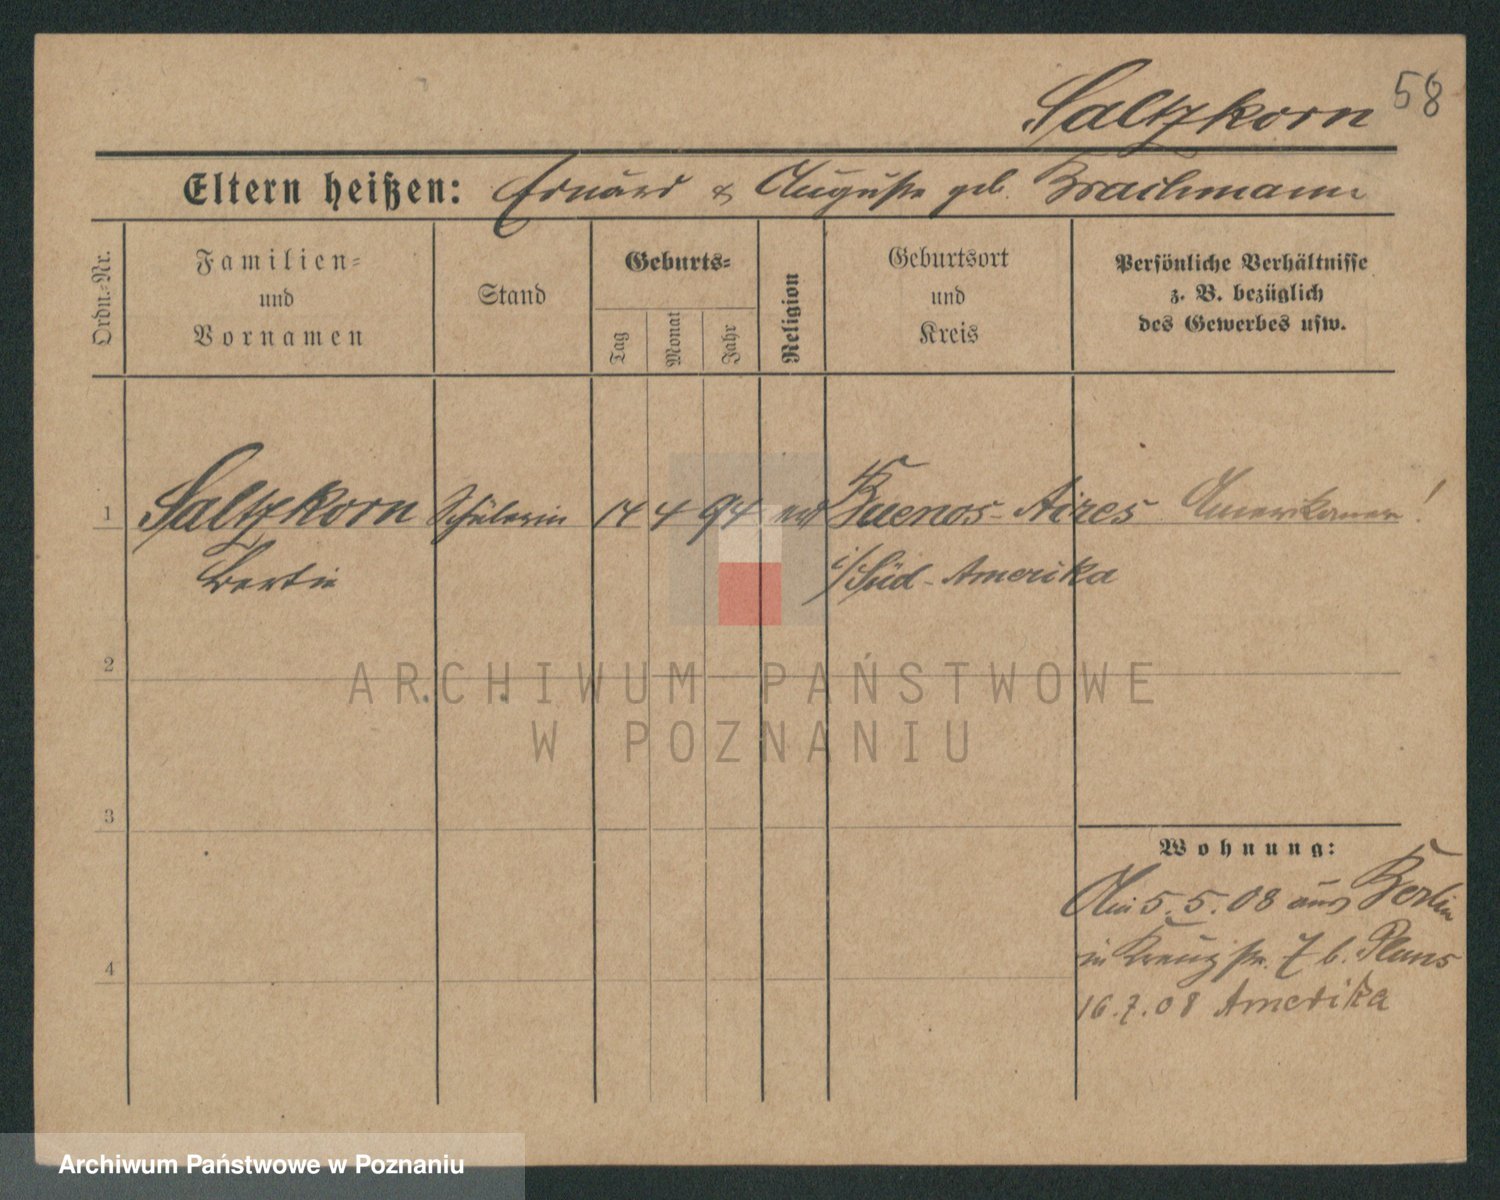 Saltzkorn 58
Eltern heißen: Eduard & Auguste geb. Brachmann
Ordn.-Nr.
Familien-
und
Vornamen
Stand
Geburts-
Tag
Monat
Jahr
Religion
Geburtsort
und
Kreis
Persönliche Verhältnisse
z. B. bezüglich
des Gewerbes usw.
1 Saltzkorn Schülerin 14 4 94 ev Buenos-Aires Amerikaner!
Bertie
i/Süd-Amerika
2
ARCHIWUM PAŃSTWOWE
W POZNANIU
3
Wohnung:
Am 5.5.08 aus Berlin
in Kreuzstr. 7 b. Plans
4
16.7.08 Amerika
Archiwum Państwowe w Poznaniu